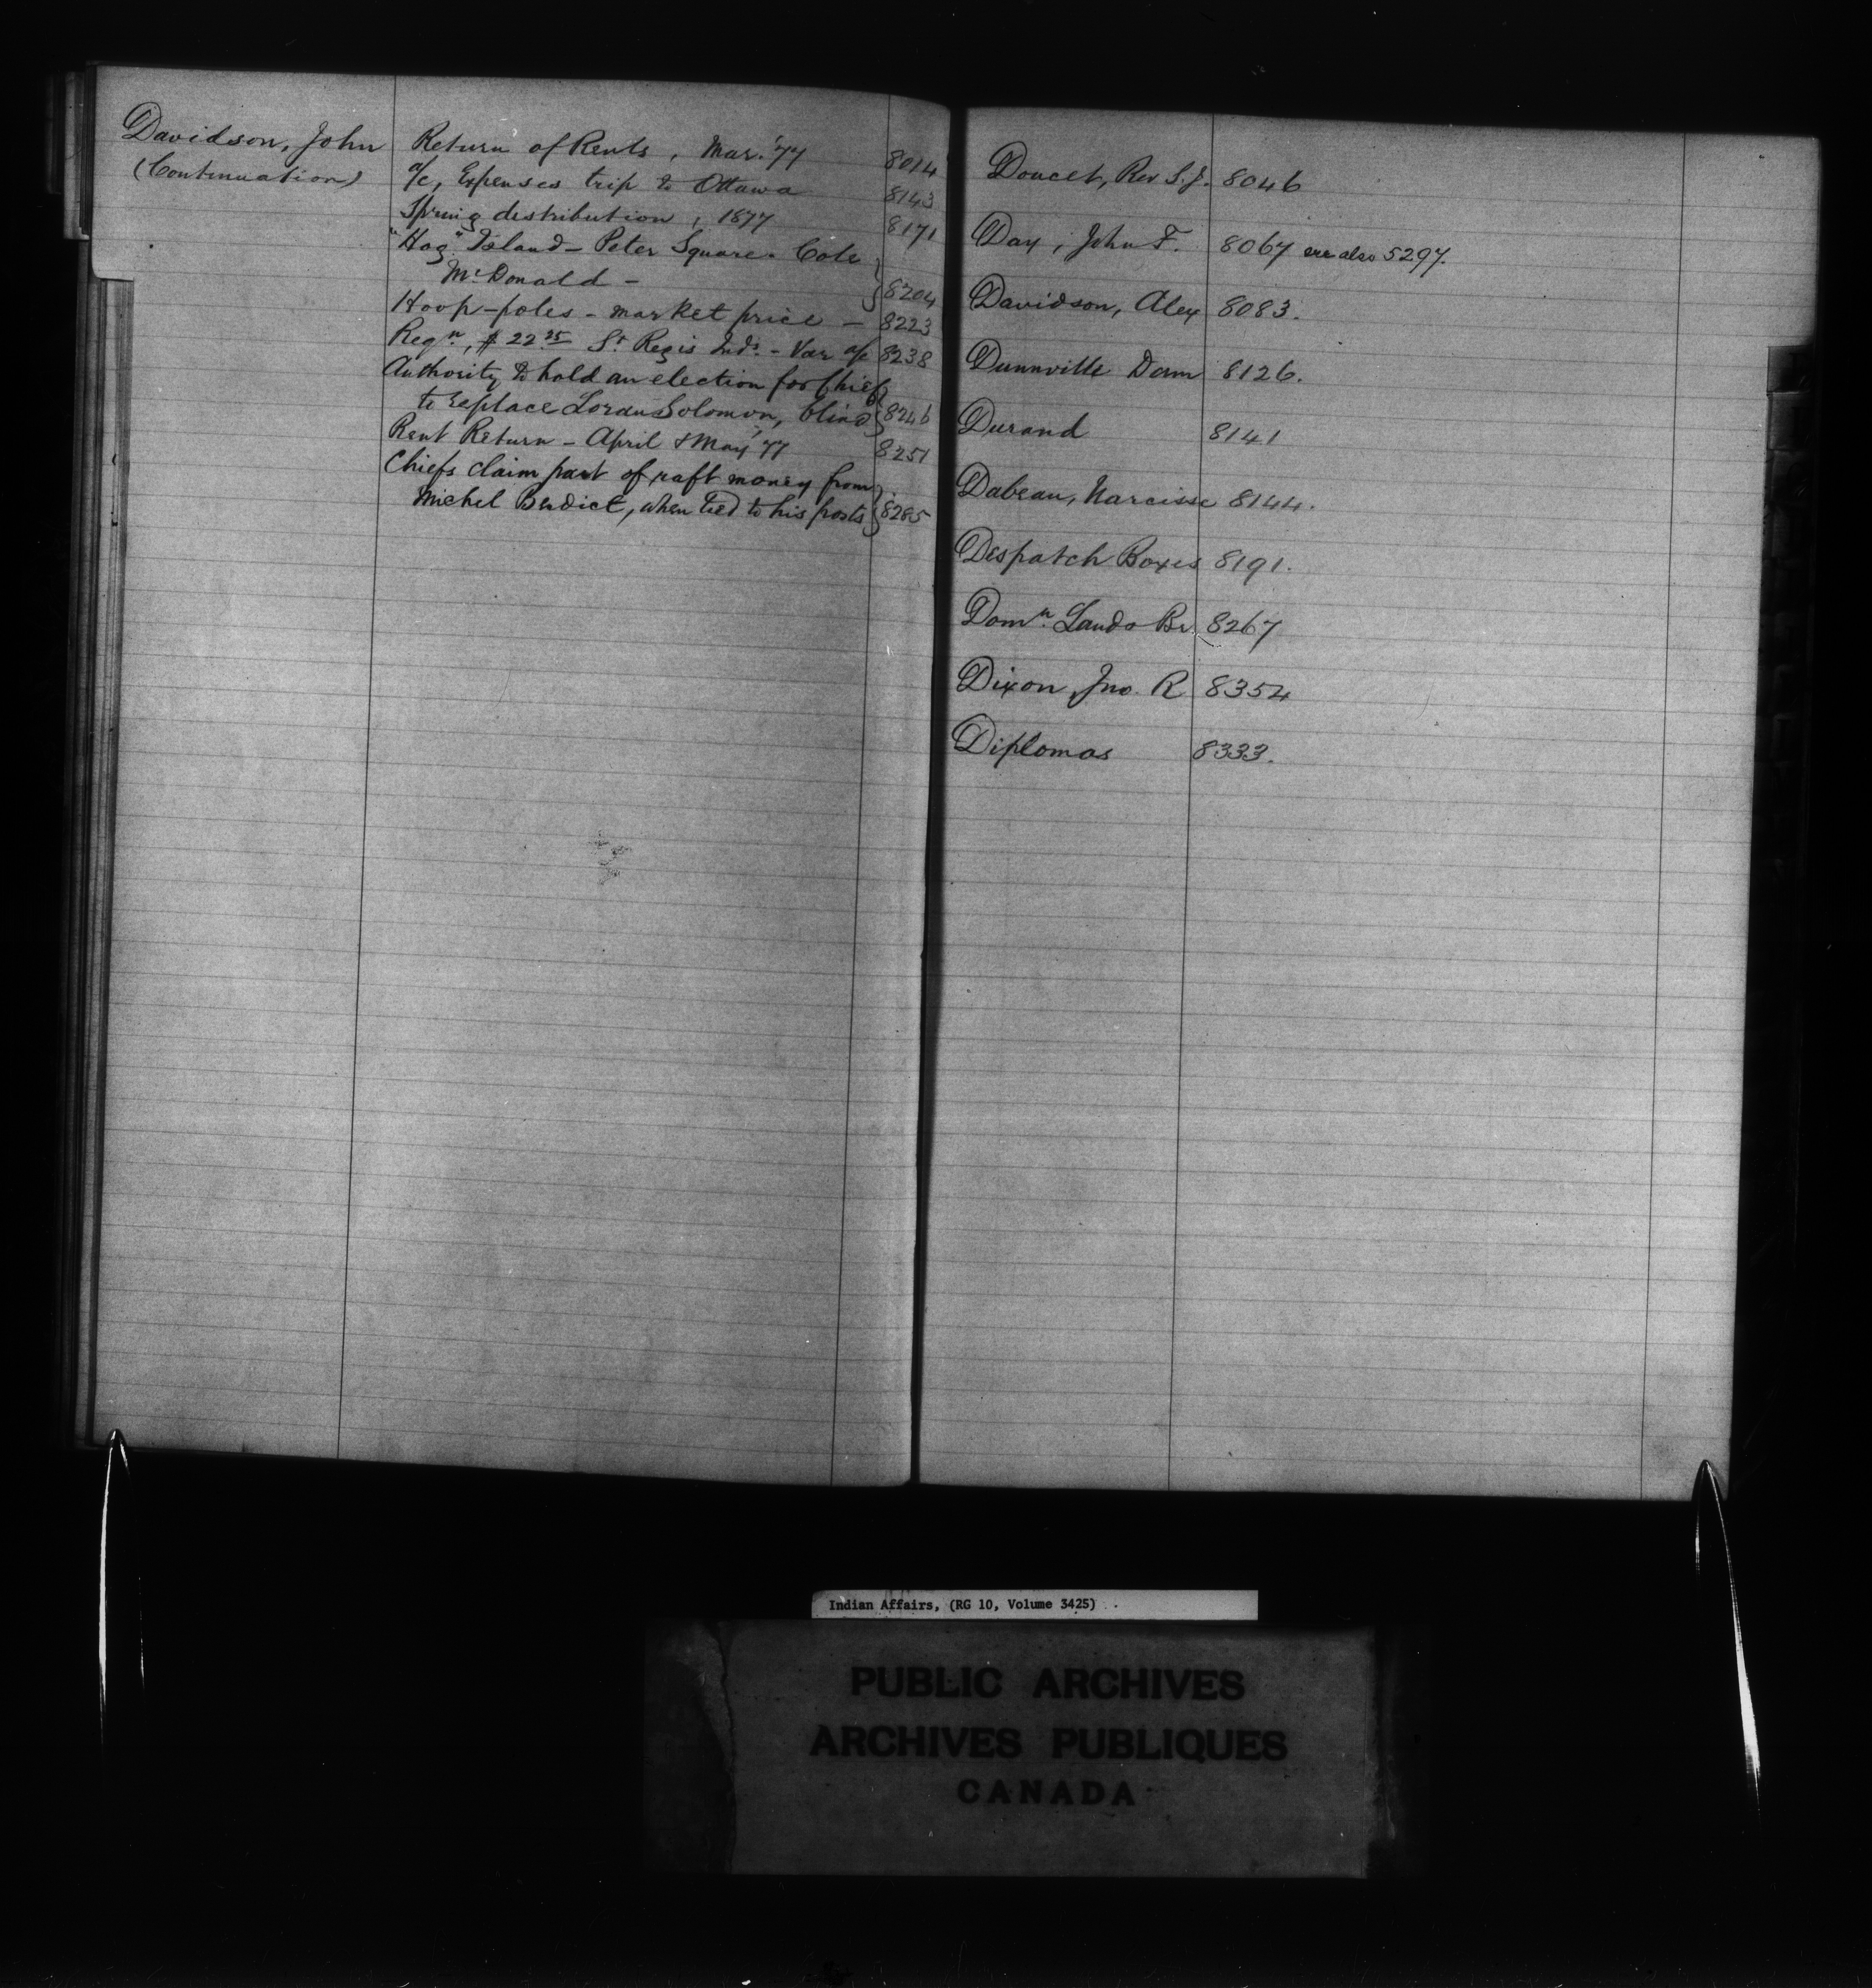 Davidson, John
(Continuation)
Return of Rents, Mar. '77 8014
a/c, Expenses trip to Ottawa 8143
Spring distribution, 1877 8171
"Hog" Island - Peter Square. Cole
McDonald - 8204
Hoop-poles - market price - 8223
Reqn, $22 25 St Regis Inds. - Var a/c 8238
Authority to hold an election for Chief
to replace Loran Solomon, blind 8246
Rent Return - April & May '77 8251
Chiefs claim part of raft money from
Michel Bendict, when tied to his posts 8285
Doucet, Rev S.J. 8046
Day, John F. 8067 see also 5297.
Davidson, Alex 8083.
Dunnville Dam 8126.
Durand 8141
Dabeau, Narcisse 8144.
Despatch Boxes 8191.
Domn. Lands Br. 8267
Dixon, Jno. R 8354
Diplomas 8333.
Indian Affairs, (RG 10, Volume 3425)
PUBLIC ARCHIVES
ARCHIVES PUBLIQUES
CANADA